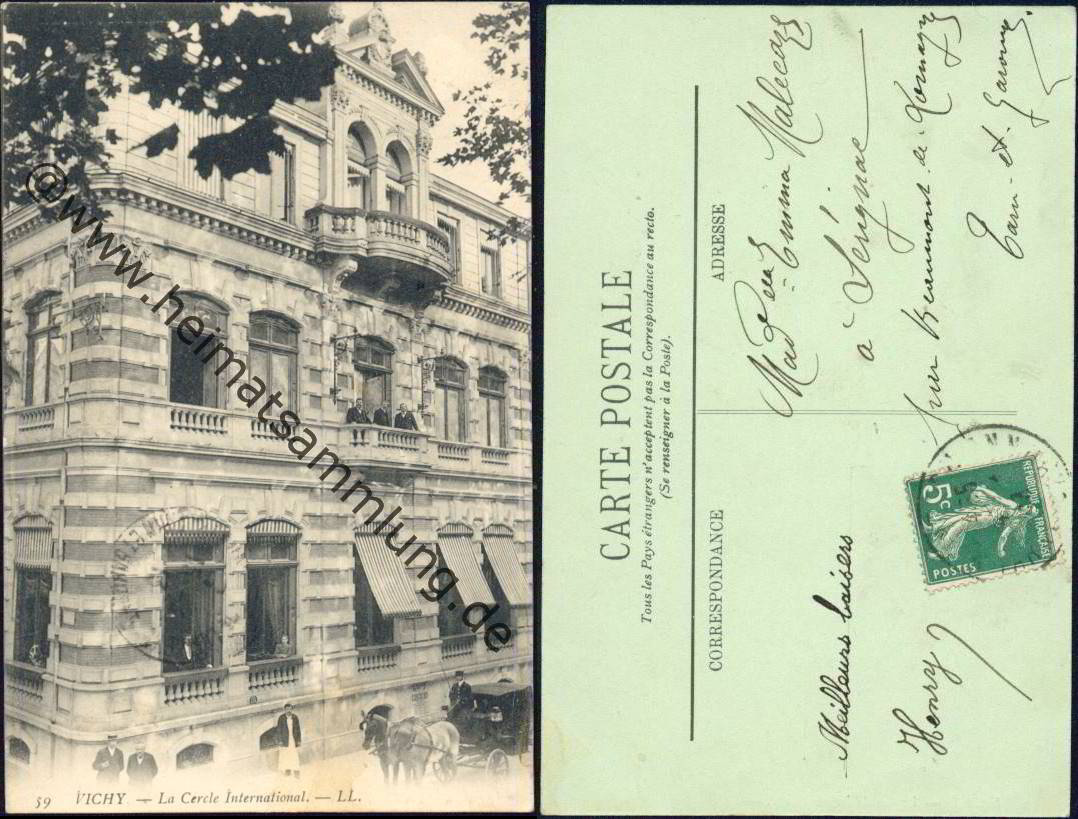 ©www.heimatsammlung.de
59 VICHY — La Cercle International. — LL.
CARTE POSTALE
Tous les Pays étrangers n'acceptent pas la Correspondance au recto.
(Se renseigner à la Poste).
CORRESPONDANCE
ADRESSE
Meilleurs baisers
Henry
Mad elle Emma Malecaze
a Sérignac
par Beaumont de Lomagne
Tarn et Garonne.
RÉPUBLIQUE FRANÇAISE
5c
POSTES